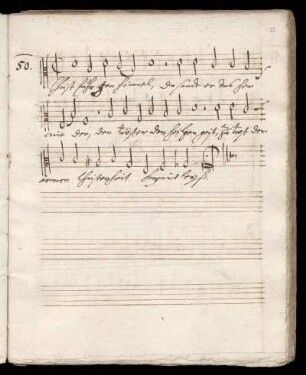 50.
Christ fuhr gen himel, da sandt er uns her
nie der, den tröster den heilgen geist, zu trost der
armen Christenheit Kyrieleyß.